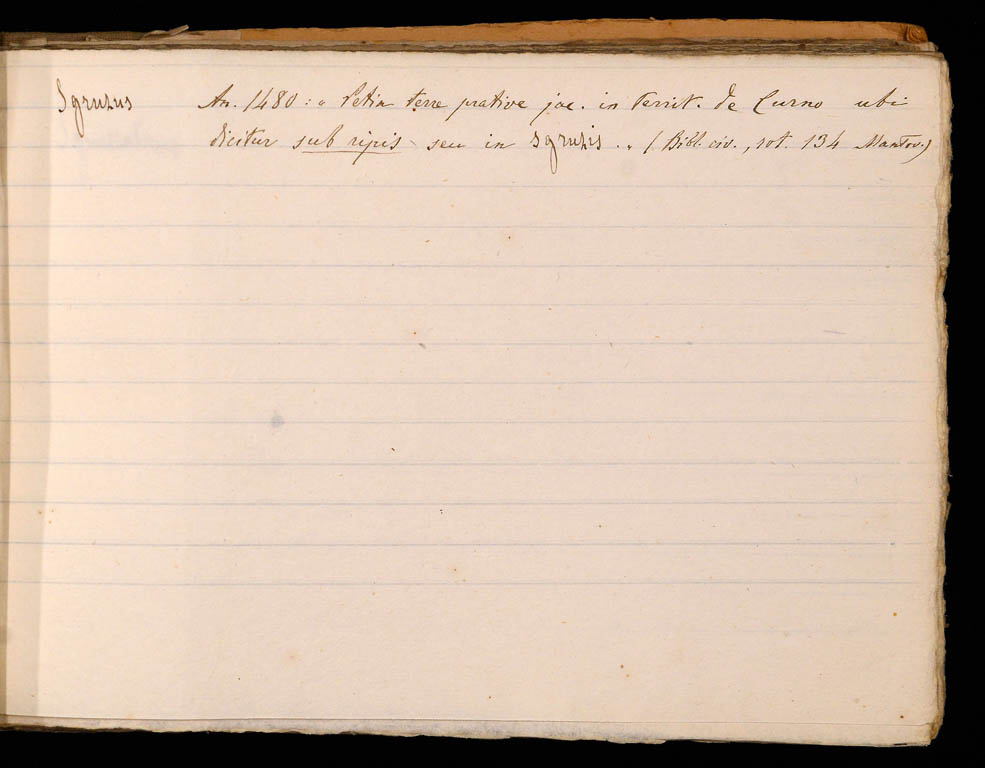 Sgruzus An. 1480: « Petia terre prative jac. in territ. de Curno ubi
dicitur sub ripis seu in Sgruzis. » (Bibl. civ., rot. 134 Mantov.)